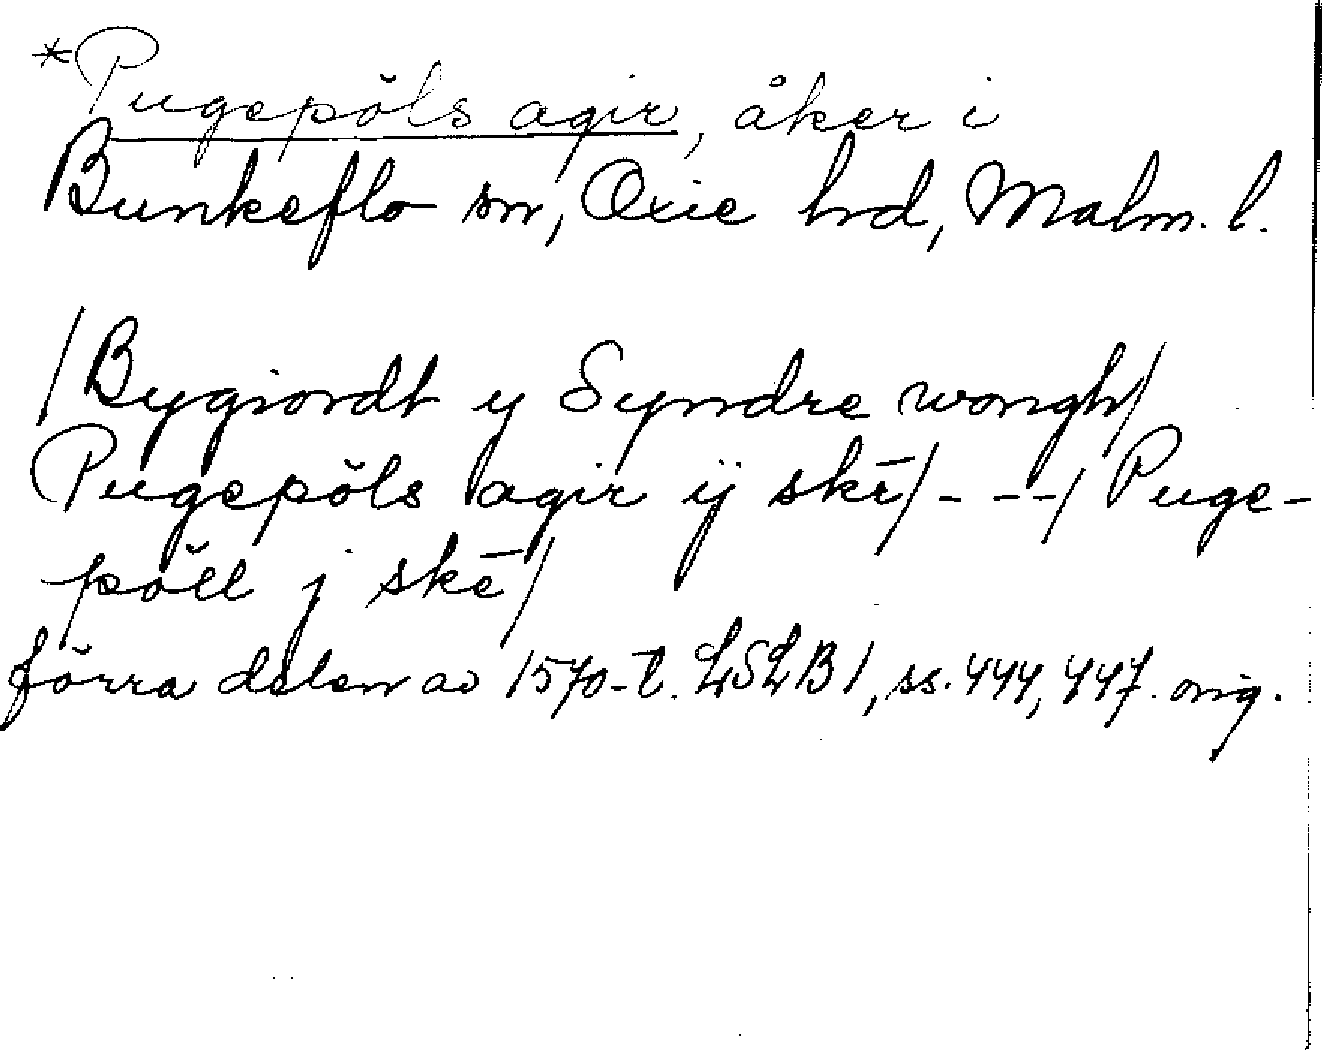 *Pugepöls agir, åker i
Bunkeflo sn, Oxie hrd, Malm. l.
/Bygiordt y Syndre wongh/
Pugepöls agir ij skē/---/Puge-
pöll j skē/
förra delen av 1570-t. LSLB1, ss. 444, 447. orig.